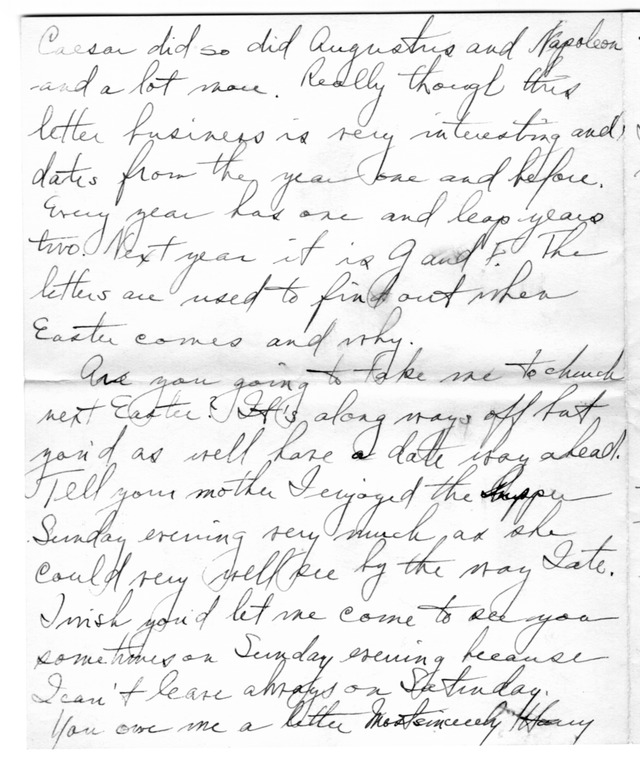 Caesar did so did Augustus and Napoleon
and a lot more. Really though this
letter business is very interesting and
dates from the year one and before.
Every year has one and leap years
two. Next year it is G and F. The
letters are used to find out when
Easter comes and why.
Are you going to take me to church
next Easter? It's along ways off but
you'd as well have a date way ahead.
Tell your mother I enjoyed the supper
Sunday evening very much as she
could very well see by the way I ate.
I wish you'd let me come to see you
sometimes on Sunday evening because
I can't leave always on Saturday.
You owe me a letter Most sincerely Henry